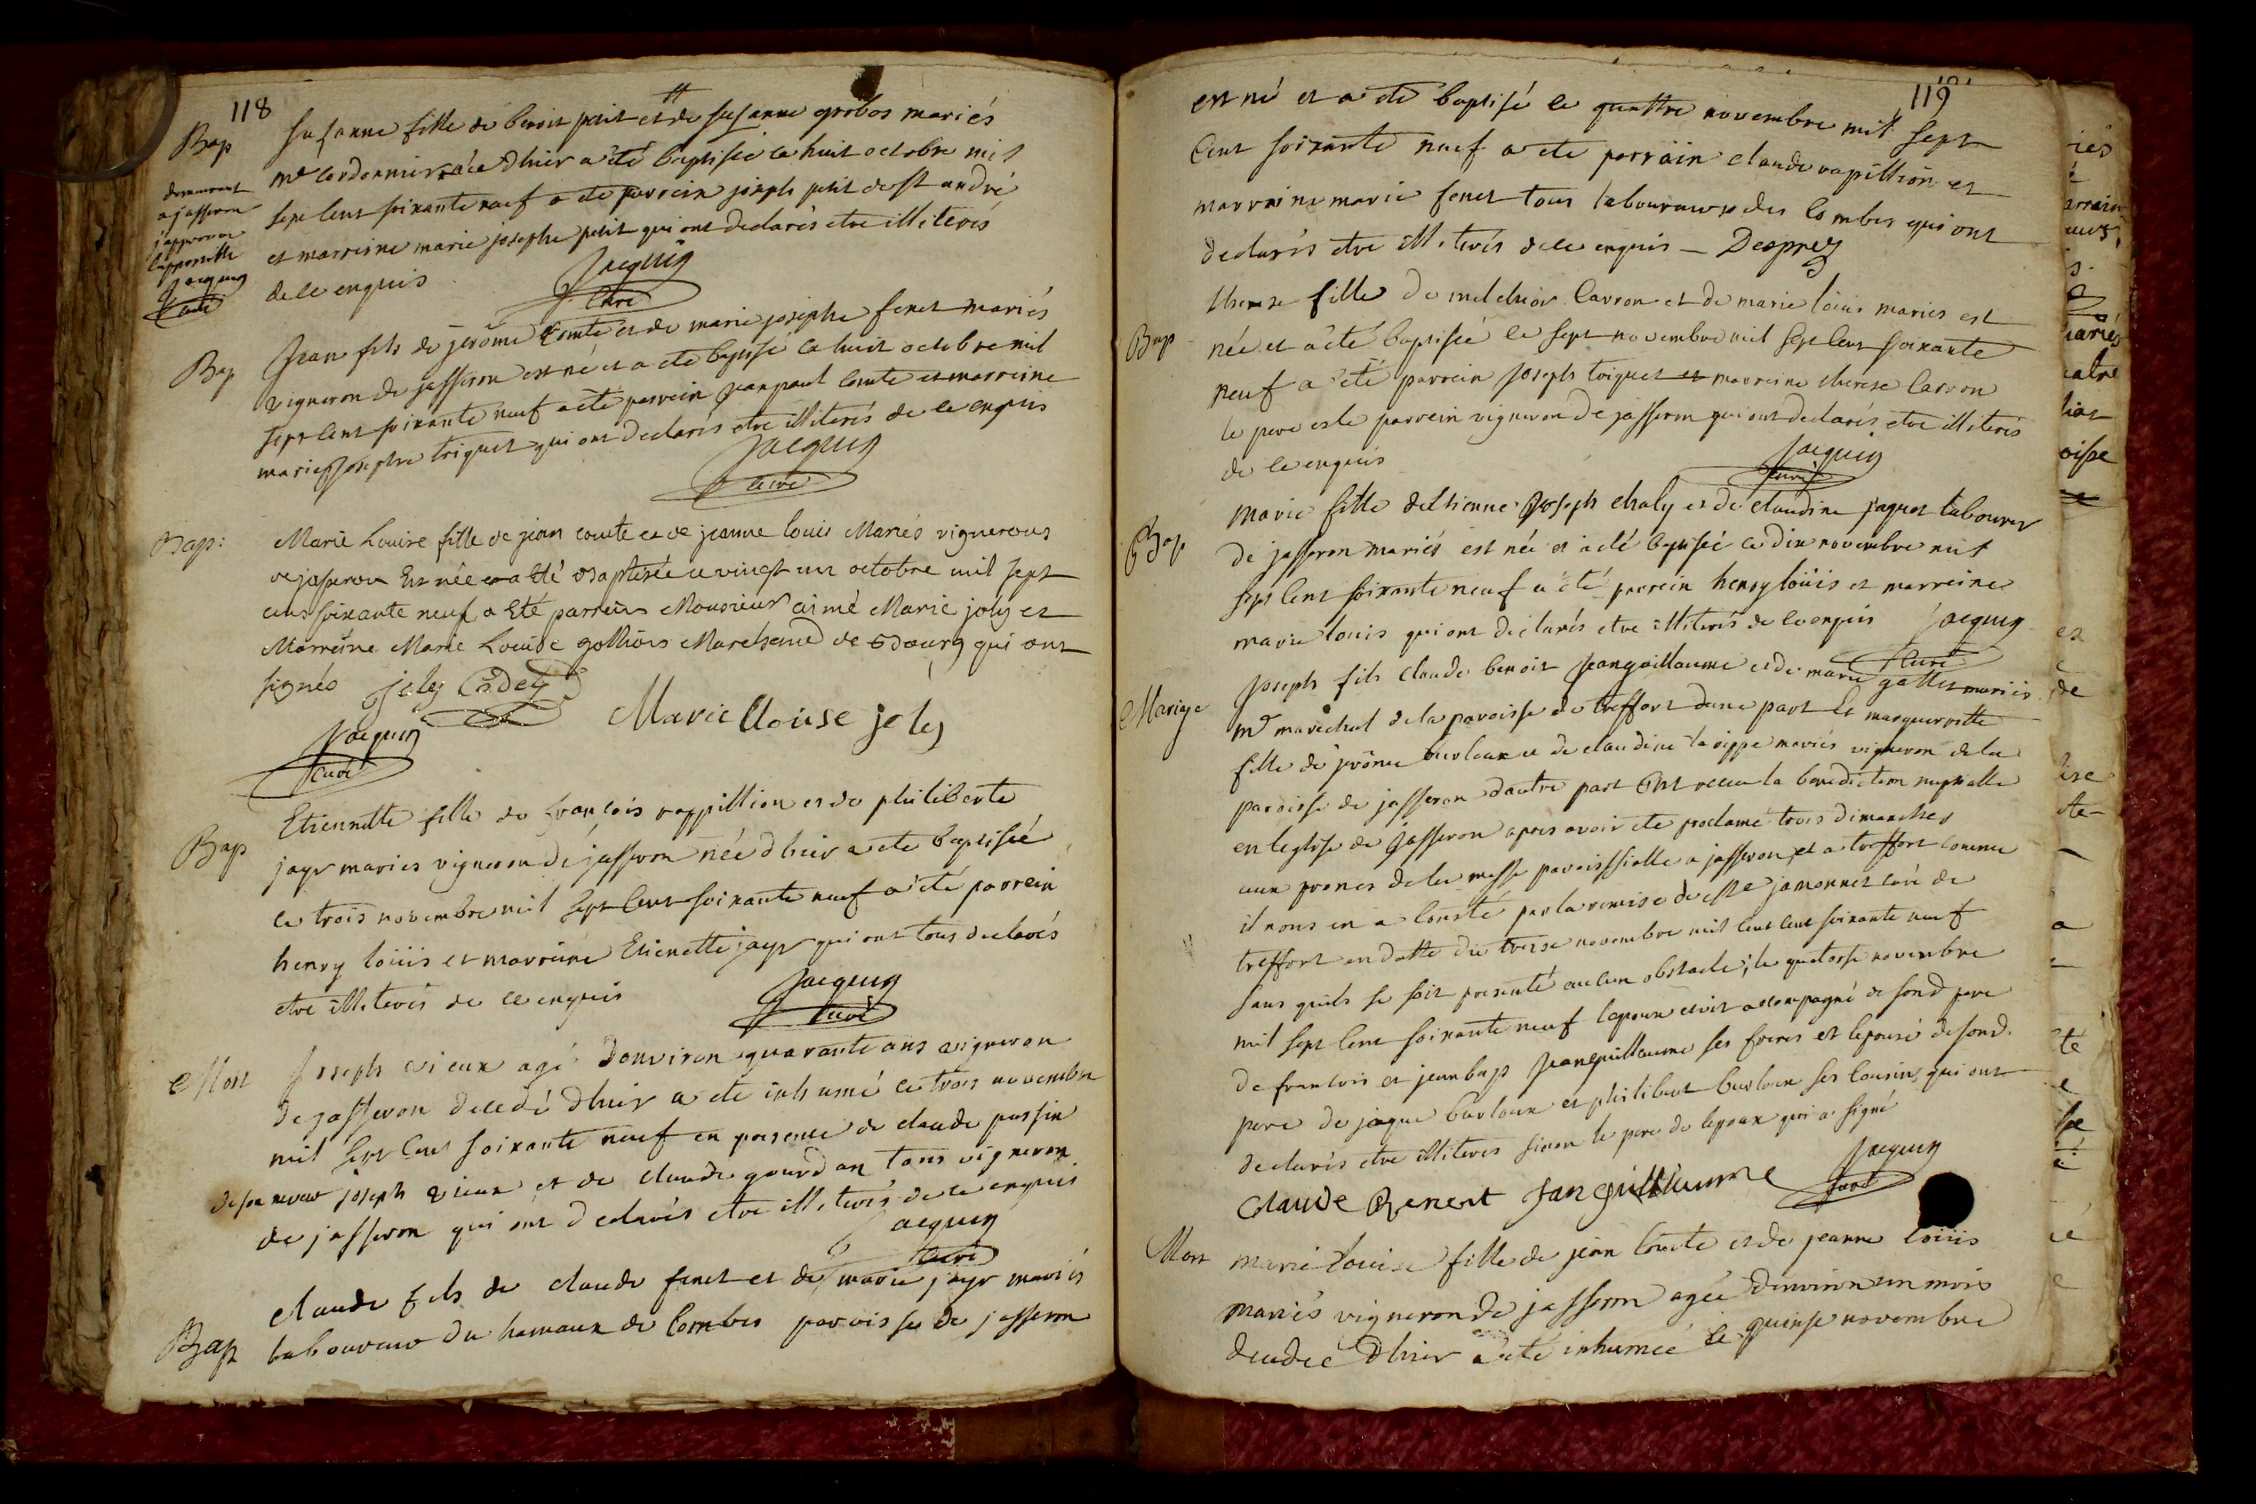 118
Bap
Susanne fille de benoit petit et de susanne grobos mariés
me cordonnier née dhier a été baptisée le huit octobre mil
sept cent soixante neuf a ete parrein joseph petit de st andré
et marreine marie josephe petit qui ont declarés etre illiterés
de ce enquis
Jacquin
curé
demeurant
a jasseron
japprouve
lapostille
Jacquin
curé
Bap
Jean fils de jerôme Comte et de marie josephe feret mariés
vigneron de jasseron est né et a ete baptisé le huit octobre mil
sept cent soixante neuf a été parrein jean paul Comte et marreine
marie josephe triquet qui ont declarés etre illiterés de ce enquis
Jacquin
curé
Bap:
Marie Louise fille de jean comte et de jeanne louis Mariés vignerons
de jasseron Est née et a Eté Baptisée ce vingt un octobre mil sept
cens soixante neuf a Eté parrein Monsieur aimé Marie joly et
Marreine Marie Louise Marchand de Bourg qui ont
signés
Joly
Marie Llouise joly
Jacquin
curé
Bap
Etiennette fille de françois rappillion et de philiberte
jayr mariés vigneron de jasseron née dhier a ete baptisée
le trois novembre mil sept cent soixante neuf a été parrein
henry loüis et marreine Etienette jayr qui ont tous declarés
etre illiterés de ce enquis
Jacquin
curé
Mort
Joseph vieux agé denviron quarante ans vigneron
de jasseron decedé dhier a ete inhumé le trois novembre
mil sept cent soixante neuf en presence de claude possin
de son neveu joseph vieux et de claude gourdan tous vigneron
de jasseron qui ont declarés etre illiterés de ce enquis
Jacquin
curé
Bap
claude fils de claude feret et de marie jayr mariés
laboureur du hamaux de Combes paroisse de jasseron
119
est né et a ete baptisé le quattre novembre mil sept
cent soixante neuf a ete parrain claude rapillion et
marraine marie feret tous laboureurs des Combes qui ont
declarés etre illiterés de ce enquis — Desprez
Bap
therese fille de melchior Carron et de marie louis mariés est
née et a été baptisée le sept novembre mil sept cent soixante
neuf a été parrein joseph triquet et marreine therese Carron
le pere et le parrein vigneron de jasseron qui ont declarés etre illiterés
de ce enquis
Jacquin
curé
Bap
Marie fille detienne joseph chaly et de claudine jaquet laboureur
de jasseron mariés est née et a été baptisée le dix novembre mil
sept cent soixante neuf a été parrein henry loüis et marreine
marie louis qui ont declarés etre illiterés de ce enquis
Jacquin
curé
Mariage
Joseph fils claude benoit jeanguillaume et de marie gallet mariés
me marechal de la paroisse de treffort dune part Et marguerite
fille de jerôme burloux et de claudine la vippe mariés vigneron de la
paroisse de jasseron dautre part Ont receu la benediction nuptialle
en leglise de jasseron apres avoir ete proclamé trois dimanches
aux prones de la messe paroissialle a jasseron et a treffort comme
il nous en a consté par la remise de janonnet curé de
treffort en datte du treise novembre mil cent soixante neuf
sans quils se soit presenté aucun obstacle; le quatorse novembre
mil sept cent soixante neuf lepoux etoit accompagné de sond pere
de francois et jean bap jeanguillaume ses freres et lepouse de sond
pere de jaque burloux et philibert burloux ses cousins qui ont
declarés etre illiterés sinon le pere de lepoux qui a signé
Jacquin
curé
Claude Benent Janguillaume
Mort
marie louise fille de jean Comte et de jeanne loüis
mariés vigneron de jasseron agée denviron un mois
decedée dhier a été inhumée le quinse novembre